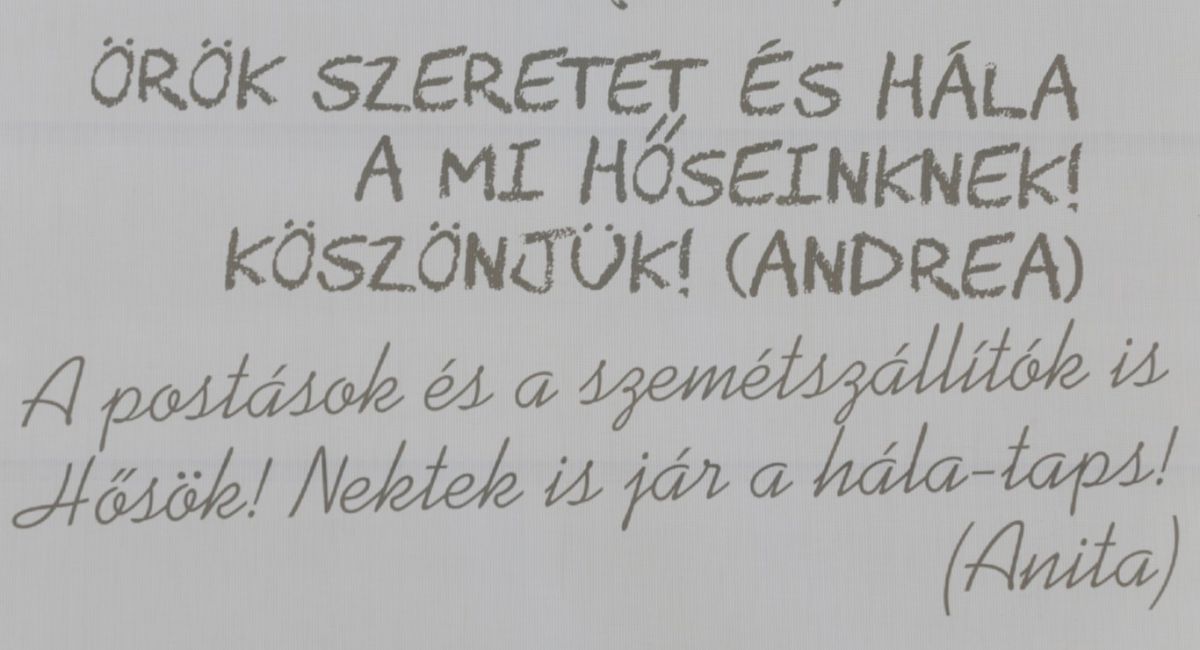 ÖRÖK SZERETET ÉS HÁLA
A MI HŐSEINKNEK!
KÖSZÖNJÜK! (ANDREA)
A postások és a szemétszállítók is
Hősök! Nektek is jár a hála-taps!
(Anita)